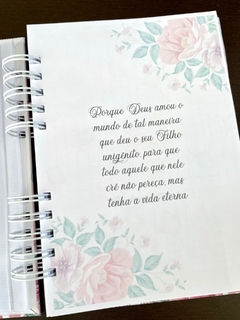 Porque Deus amou o
mundo de tal maneira
que deu o seu Filho
unigênito, para que
todo aquele que nele
crê não pereça, mas
tenha a vida eterna